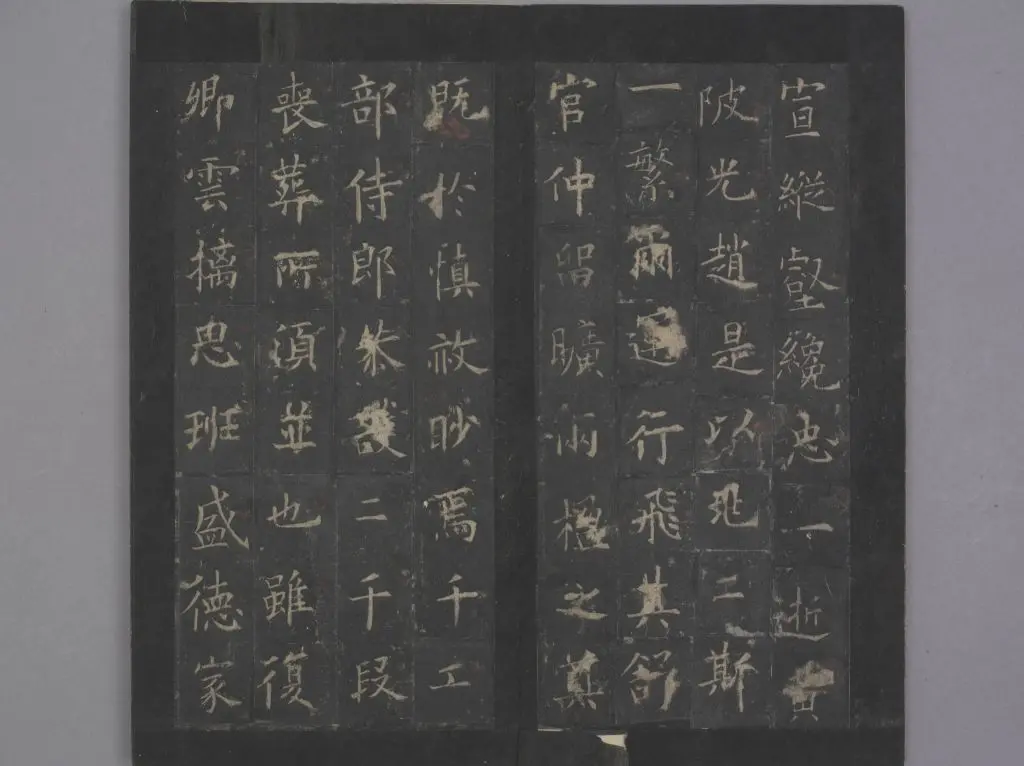 宣縱壑纔忠一逝
陂光趙是以二斯
一繁爾行飛其
官仲留曠兩楹之奠
既於慎放眇焉千工
部侍郎二千段
喪葬所須並也雖復
卿雲摛忠班盛德家